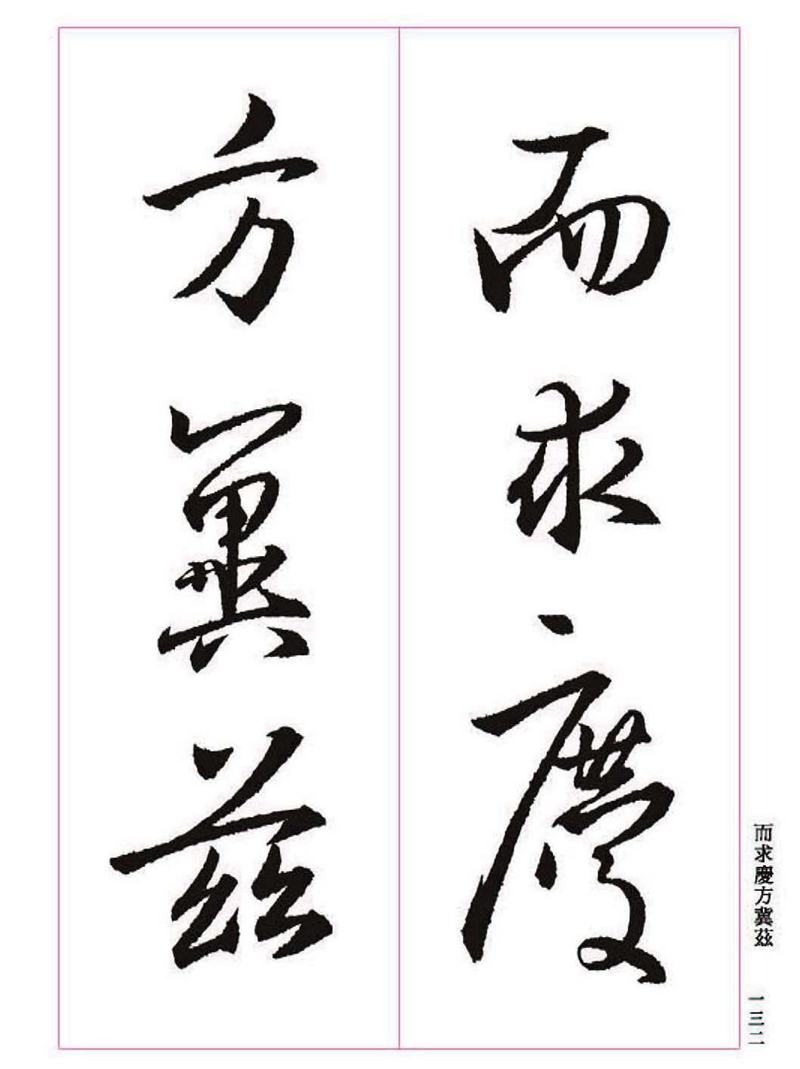 而求慶
方冀茲
而求慶方冀茲
一三二